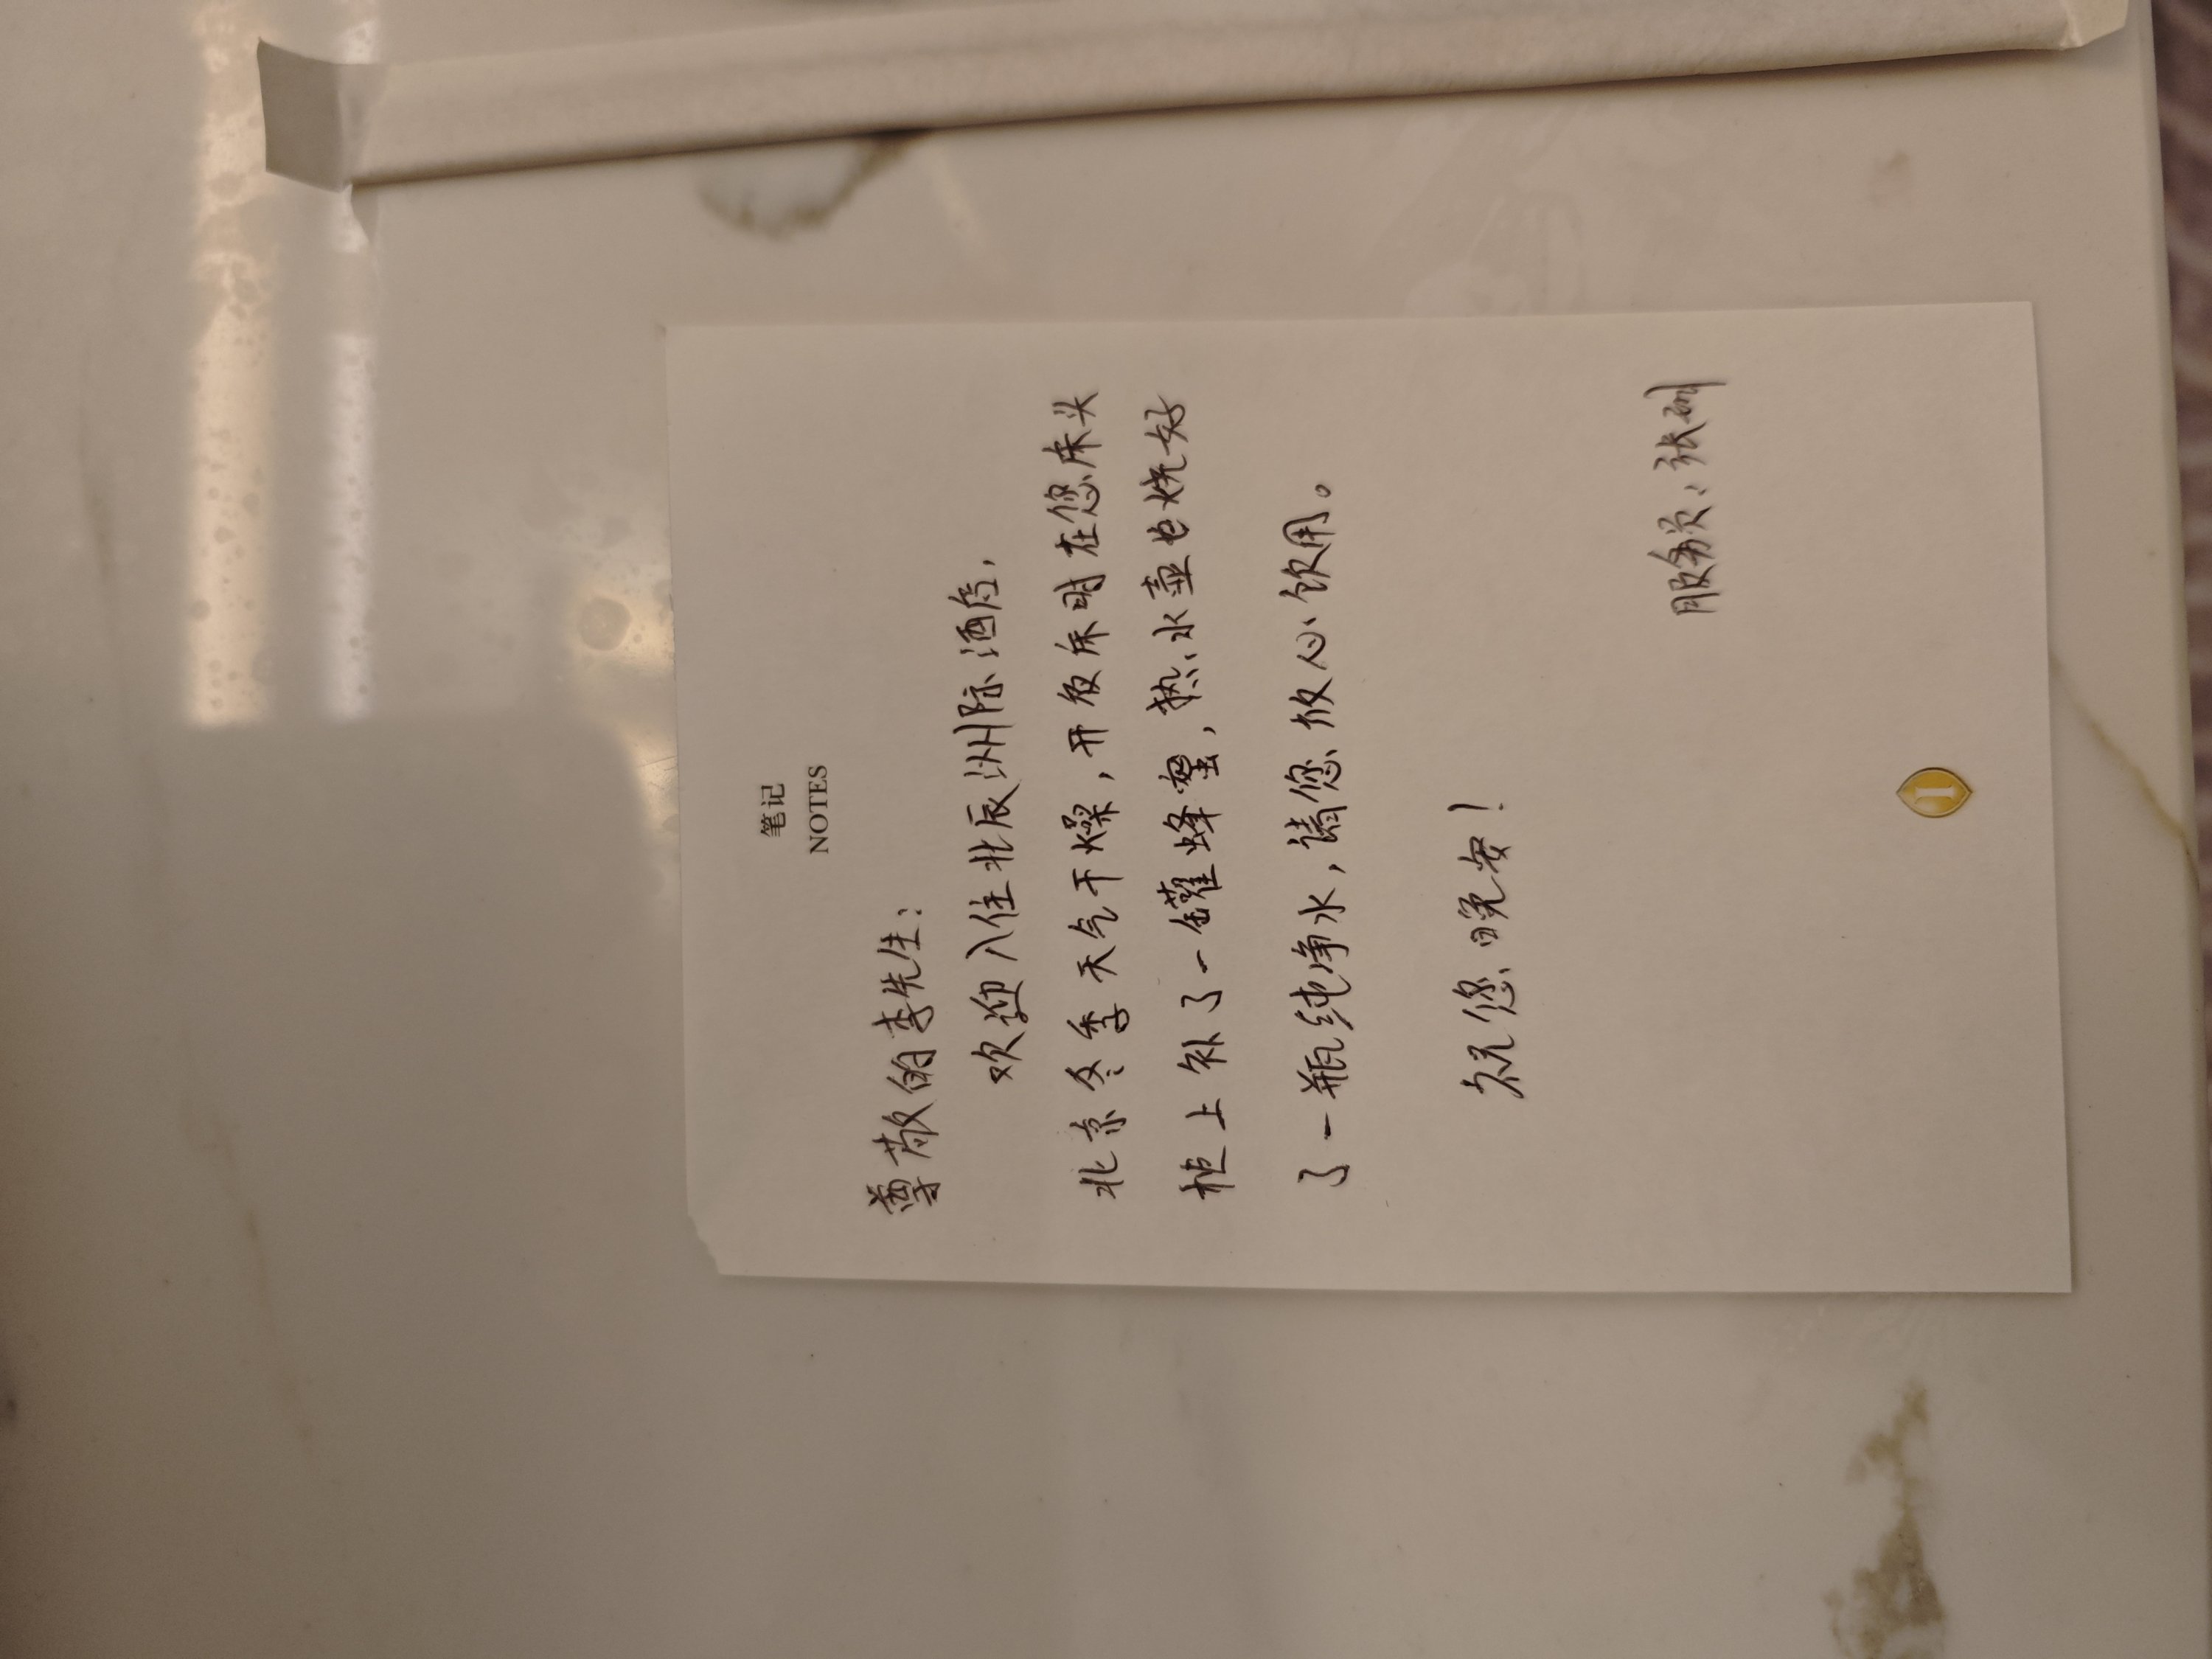 笔记
NOTES
尊敬的李先生:
欢迎入住北辰洲际酒店,
北京冬季天气干燥,开夜床时在您床头
柜上补了一罐蜂蜜,热水壶也烧好
了一瓶纯净水,请您放心饮用。
祝您晚安!
服务员:张